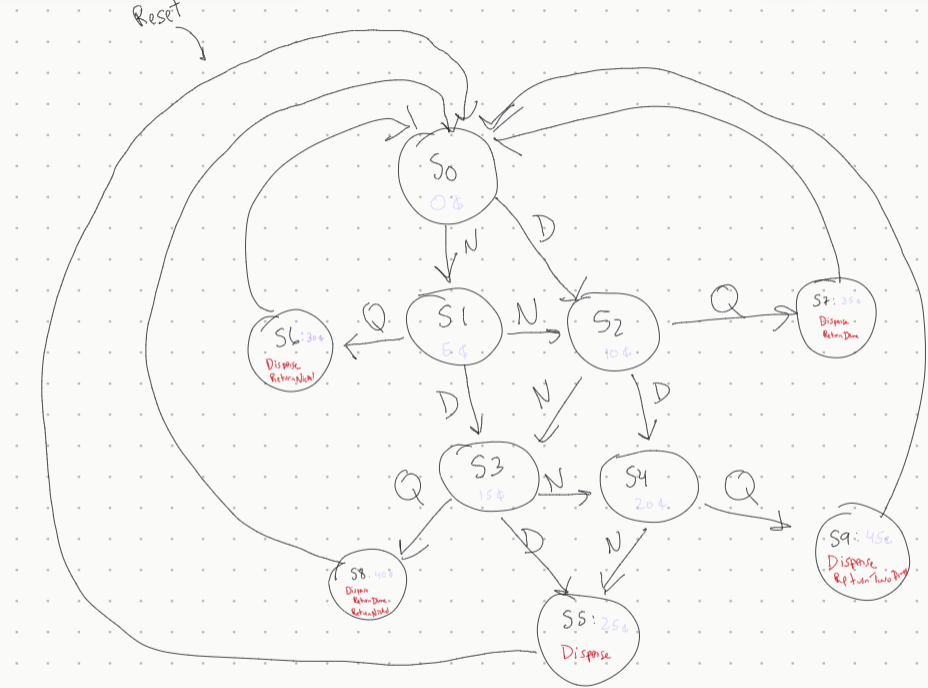 Reset
S0
0¢
N
D
S1
5¢
N
S2
10¢
Q
S7: 35¢
Dispense
Return Dime
Q
S6: 30¢
Dispense
Return Nickel
D
N
D
S3
15¢
N
S4
20¢
Q
Q
D
N
S9: 45¢
Dispense
Return Two Dimes
S8: 40¢
Dispense
Return Dime
Return Nickel
S5: 25¢
Dispense